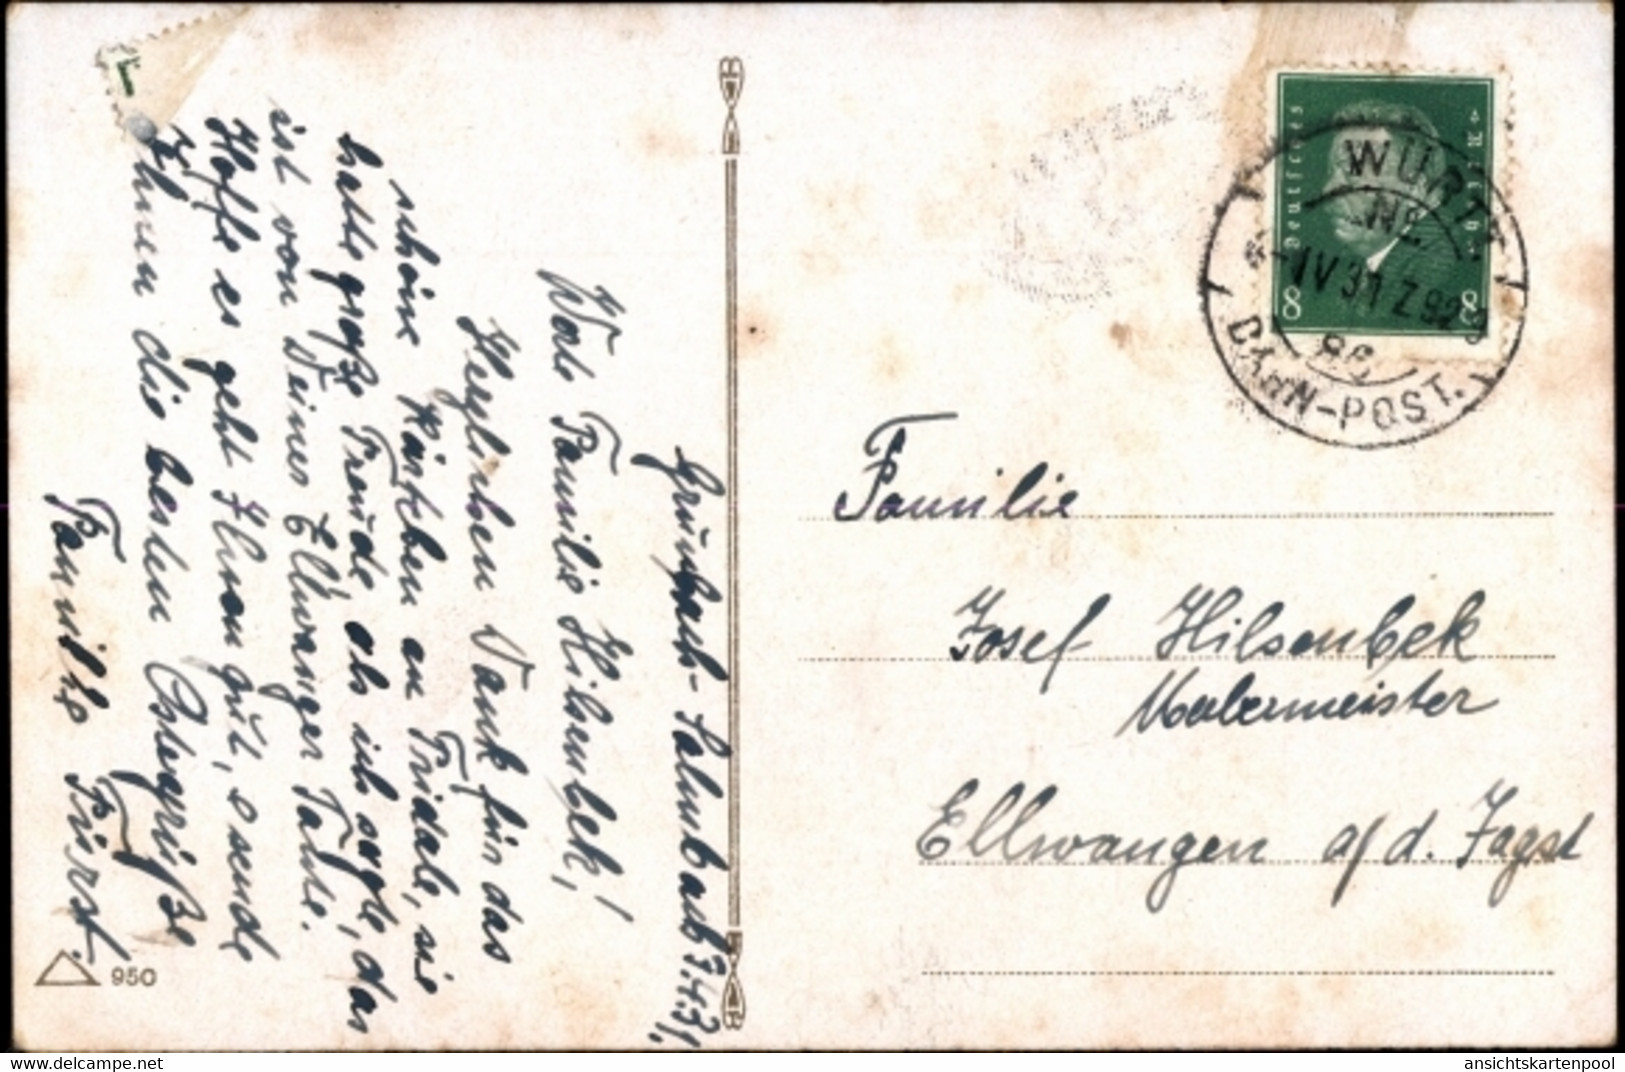 Grunbach-Salmbach 7.4.31.
Wob Familie Hilsenbek!
Herzlichen Dank für das
schöne Kärtchen an Fridale, sie
hatte große Freude, als ich sagte, das
ist von Deiner Ellwanger Tante.
Hoffe es geht Ihnen gut, sende
Ihnen die besten Ostergrüße
Familie Fürst.
950
Deutsches Reich
8 8
WÜRTT
IV 31 Z 92
BAHN-POST.
Familie
Josef Hilsenbek
Malermeister
Ellwangen a/d. Jagst
ansichtskartenpool